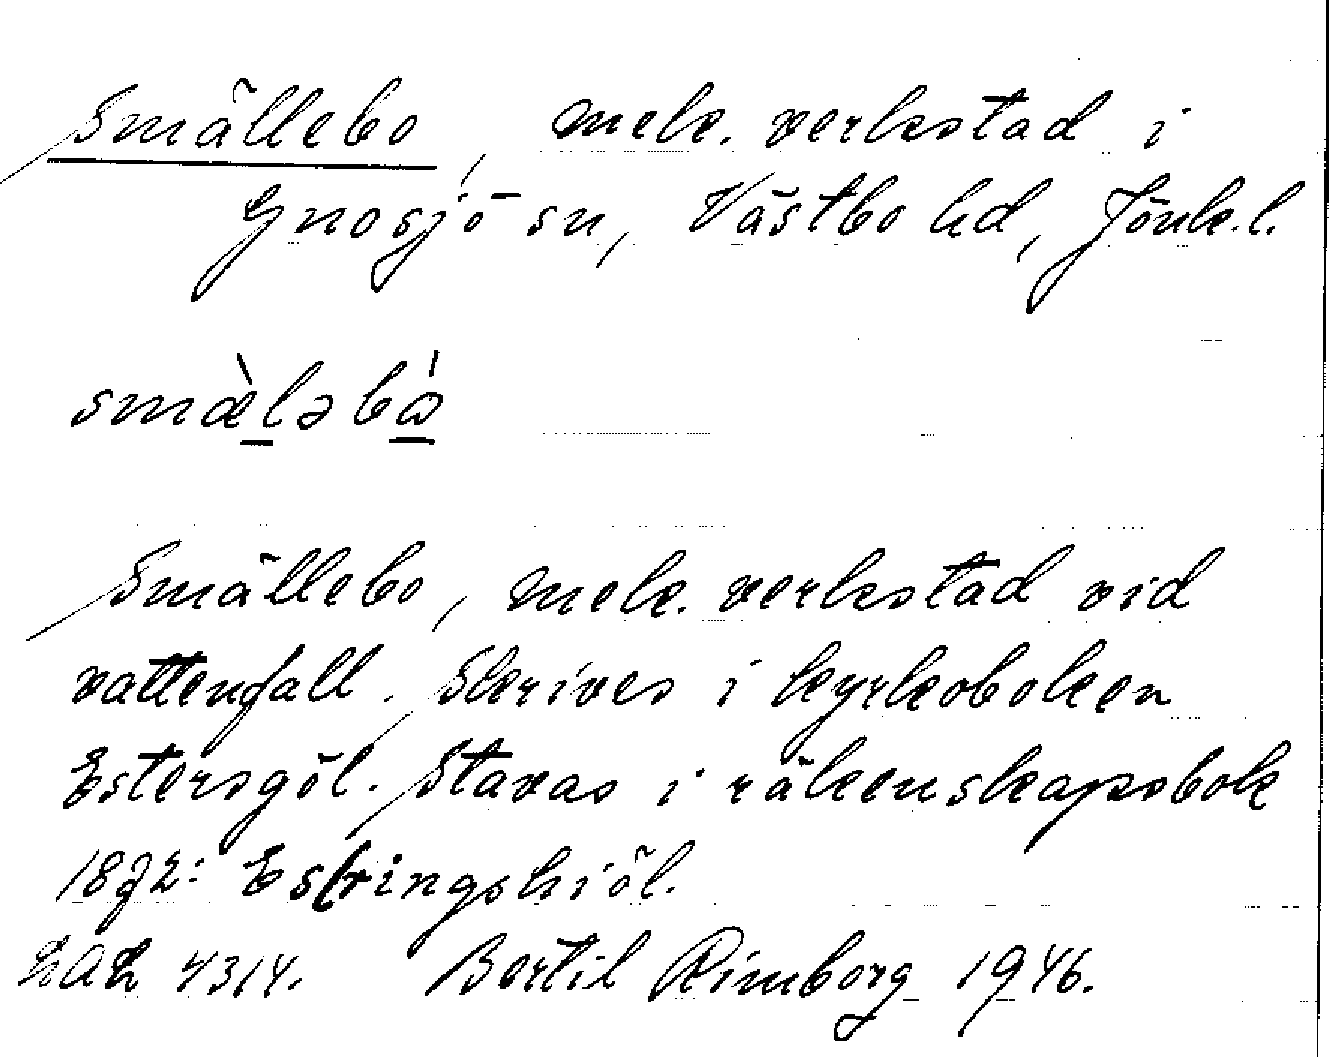 Smällebo, mek. verkstad i
Gnosjö sn, Västbo hd, Jönk.l.
smæ̀ləbɷ́
Smällebo, mek. verkstad vid
vattenfall. Skrives i kyrkoboken
Estersgöl. Stavas i räkenskapsbok
Estringshiöl.
4314. Bertil Rimborg 1946.